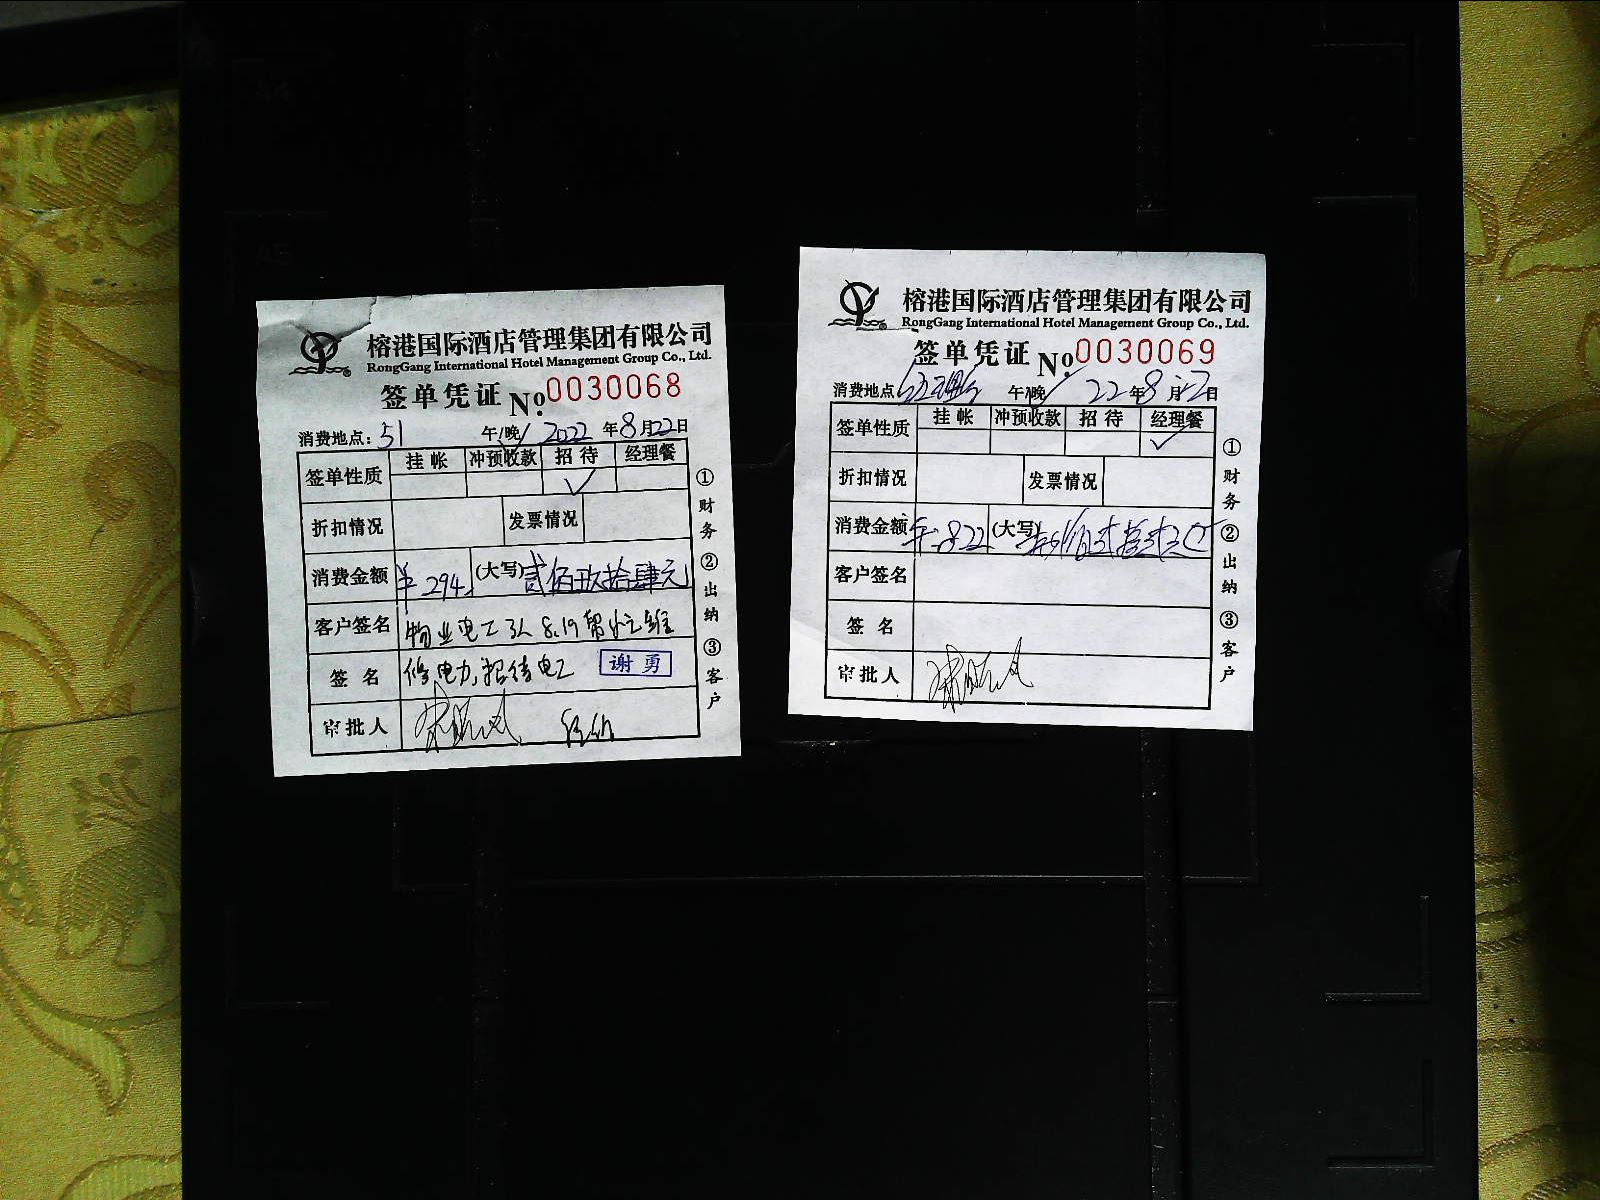 榕港国际酒店管理集团有限公司
RongGang International Hotel Management Group Co., Ltd.
签单凭证 No.0030068
消费地点: 51 午/晚/ 2022年8月22日
签单性质 挂帐 冲预收款 招待 经理餐
✓
折扣情况 发票情况
消费金额 ¥294. (大写) 贰佰玖拾肆元
客户签名 物业电工队8.19帮忙维
签名 修电力,招待电工 谢勇
审批人
①财务 ②出纳 ③客户
榕港国际酒店管理集团有限公司
RongGang International Hotel Management Group Co., Ltd.
签单凭证 No.0030069
消费地点 午/晚/ 22年8月22日
签单性质 挂帐 冲预收款 招待 经理餐
✓
折扣情况 发票情况
消费金额 ¥:822 (大写) 捌佰贰拾贰元
客户签名
签名
审批人
①财务 ②出纳 ③客户